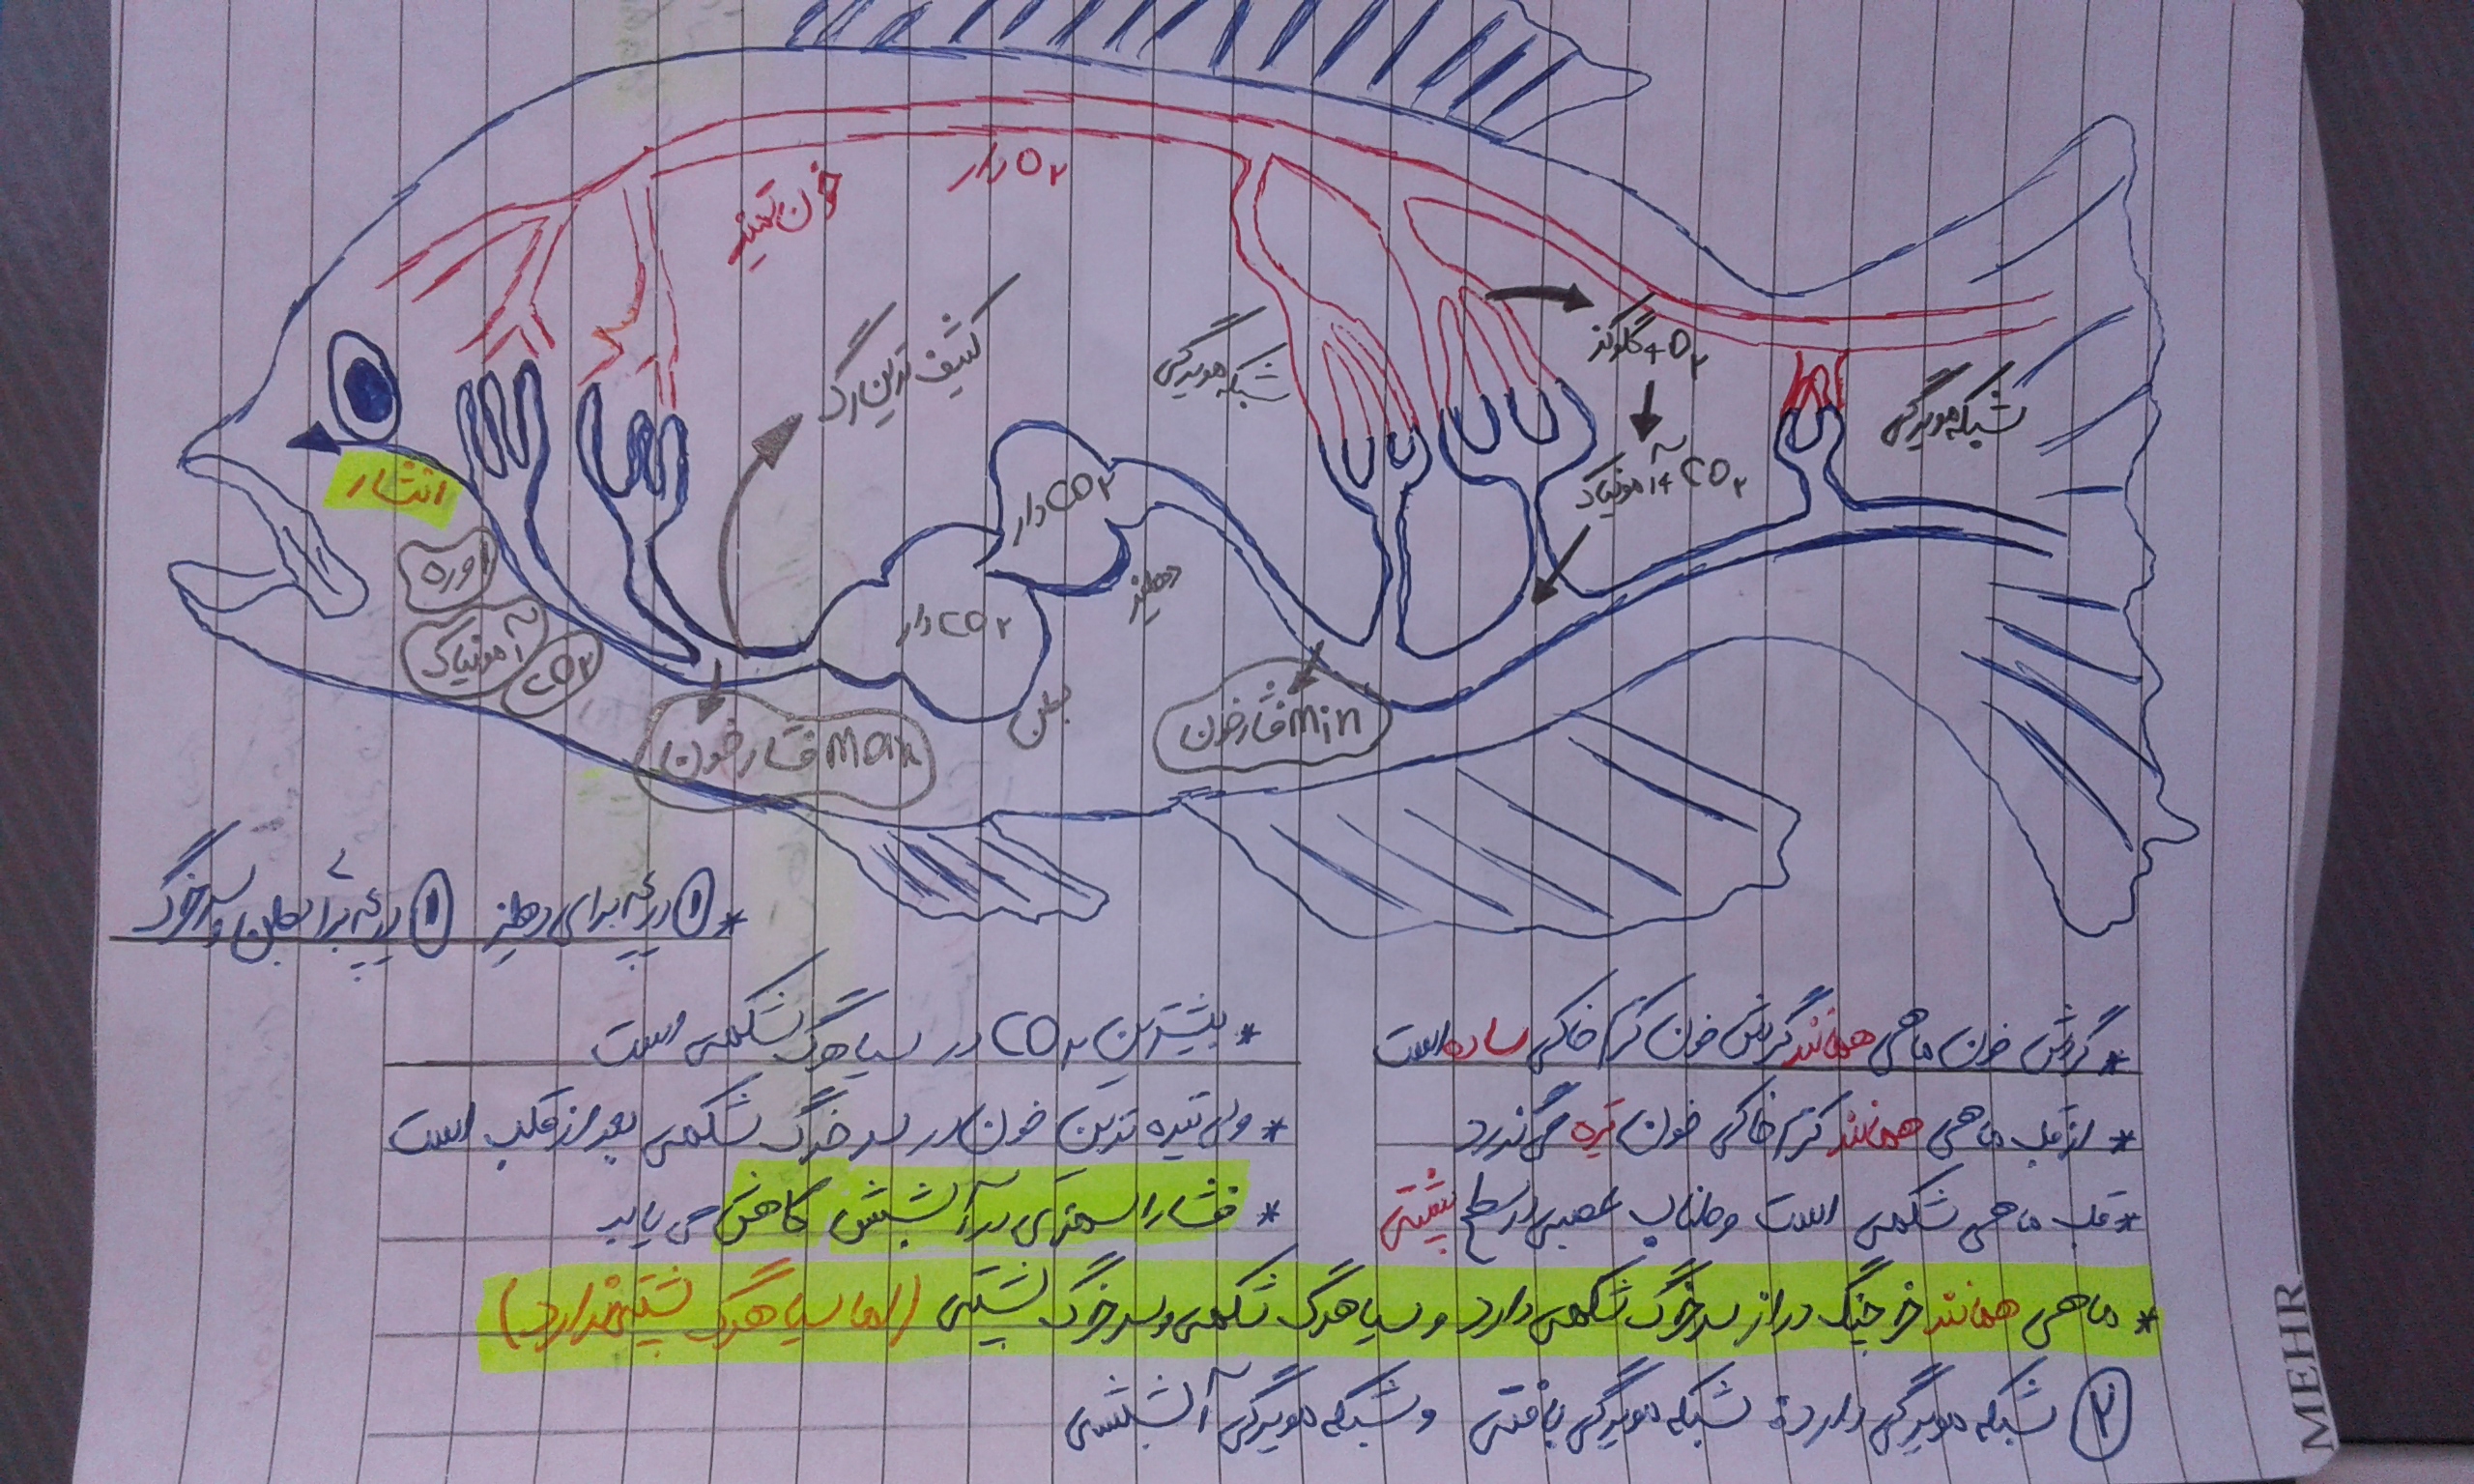 O۲ دار
خون تمیز
کثیف ترین رگ
شبکه مویرگی
گلوکز + O۲
شبکه مویرگی
CO۲ + آمونیاک
انتشار
CO۲ دار
اوره
دهلیز
CO۲ دار
آمونیاک
CO۲
بطن
Min فشار خون
Max فشار خون
* ① دریچه برای دهلیز ① دریچه برای بطن و سرخرگ
* گردش خون ماهی همانند گردش خون کرم خاکی ساده است
* بیشترین CO۲ در سیاهرگ شکمی است
* از قلب ماهی همانند کرم خاکی خون تیره می گذرد
* ولی تیره ترین خون در سرخرگ شکمی بعد از قلب است
* قلب ماهی شکمی است و طناب عصبی در سطح پشتی
* فشار اسمزی در آبشش کاهش می یابد
* ماهی همانند خرچنگ دراز سرخرگ شکمی دارد و سیاهرگ شکمی و سرخرگ پشتی (اما سیاهرگ پشتی ندارد)
② شبکه مویرگی دارد: شبکه مویرگی بافتی و شبکه مویرگی آبششی
MEHR